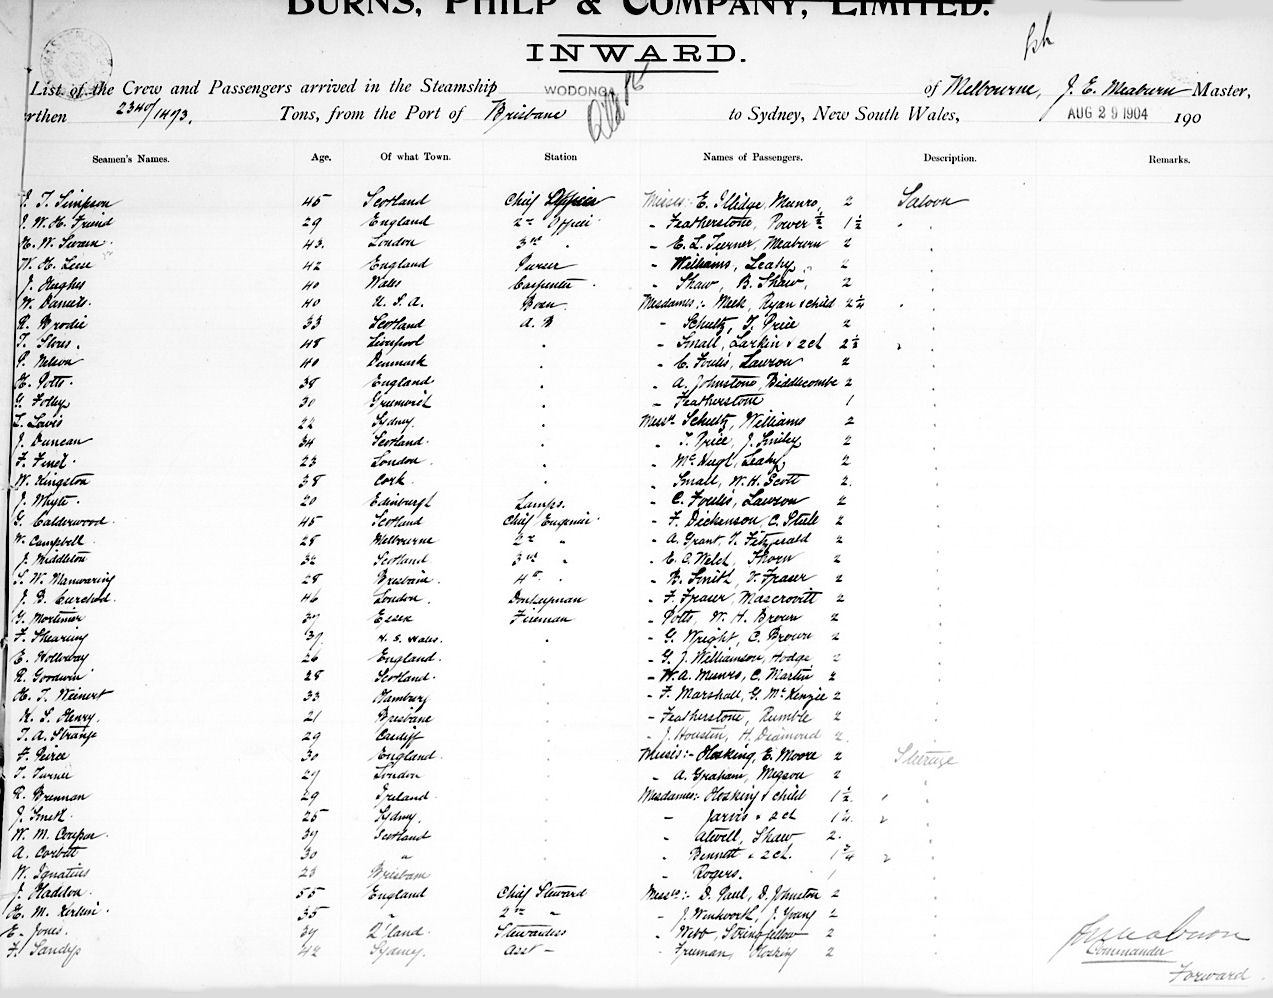 BURNS, PHILP & COMPANY, LIMITED.
INWARD.
List of the Crew and Passengers arrived in the Steamship WODONGA of Melbourne, J. E. Meaburn Master,
rthen 2340/1473, Tons, from the Port of Brisbane to Sydney, New South Wales, AUG 29 1904 190
Seamen's Names. Age. Of what Town. Station Names of Passengers. Description. Remarks.
J. T. Simpson 45 Scotland Chief Officer Misses: E. Illidge, Munro, 2 Saloon
J. W. H. Friend 29 England 2nd Officer " Featherstone, Power ½ 1½ "
H. W. Swain 43 London 3rd " " E. L. Turner, Meaburn 2
W. H. 42 England Purser " Williams, Leahy 2
J. Hughes 40 Wales Carpenter " Shaw, B. Shaw, 2
W. Daniels 40 U. S. A. Bosn Mesdames:- Meek, Ryan & child 2¼
R. Brodie 33 Scotland A. B " Schultz, T. Price 2
T. 48 Liverpool " Small, Larkin & 2 ch 2½
P. Nelson 40 Denmark " C. Foulis, Lawson 2
H. Potts 38 England " A. Johnstone, Biddlecombe 2
G. Folley 30 Greenwich " Featherstone 1
L. Lewis 22 Sydney Messrs Schultz, Williams 2
J. Duncan 34 Scotland " T. Price, J. Smiley 2
F. 23 London " Leahy 2
W. Kingston 38 Cork " Small, W. H. Scott 2
J. Whyte 20 Edinburgh Lamps. " C. Foulis, Lawson 2
G. Calderwood 45 Scotland Chief Engineer " F. Dickenson, C. Steele 2
W. Campbell 28 Melbourne 2nd " " A. Grant, T. Fitzgerald 2
J. Middleton 32 Scotland 3rd " " E. C. Welch, Thorn 2
S. W. Manwaring 28 Brisbane 4th " " B. Smith, V. Fraser 2
J. B. 46 London Donkeyman " F. Fraser, 2
G. Mortimer 37 Essex Fireman " Potts, W. H. Brown 2
F. Shearing 37 N. S. Wales " G. Wright, C. Brown 2
E. Holloway 26 England " G. J. Williamson, Hodge 2
R. Goodwin 28 Scotland " W. A. Munro, C. Martin 2
H. T. Weinert 33 Hamburg " F. Marshall, G. McKenzie 2
H. S. Henry 21 Brisbane " Featherstone, Rumble 2
T. A. Strange 29 Cardiff " J. Houston, H. Diamond 2
F. Peirce 30 England Misses:- Hosking, E. Moore 2 Steerage
T. Turner 27 London " A. Graham, Megson 2
R. Brennan 29 Ireland Mesdames: Hosking & child 1½
J. Smith 25 Sydney " Jarvis & 2 ch
W. M. Cowper 37 Scotland " Atwell, Shaw 2
A. Corbett 30 " " Bennett & 2 ch.
W. Ignatius 23 Brisbane " Rogers. 1
J. Haddon 55 England Chief Steward Messrs:- D. Paul, D. Johnston 2
H. M. 35 " 2nd " " J. Wentworth, J. Young 2
E. Jones 37 Q'land Stewardess " Webb, Stringfellow 2
F. Sandys 42 Sydney Asst " " Freeman, Hosking 2
Commander
Forward